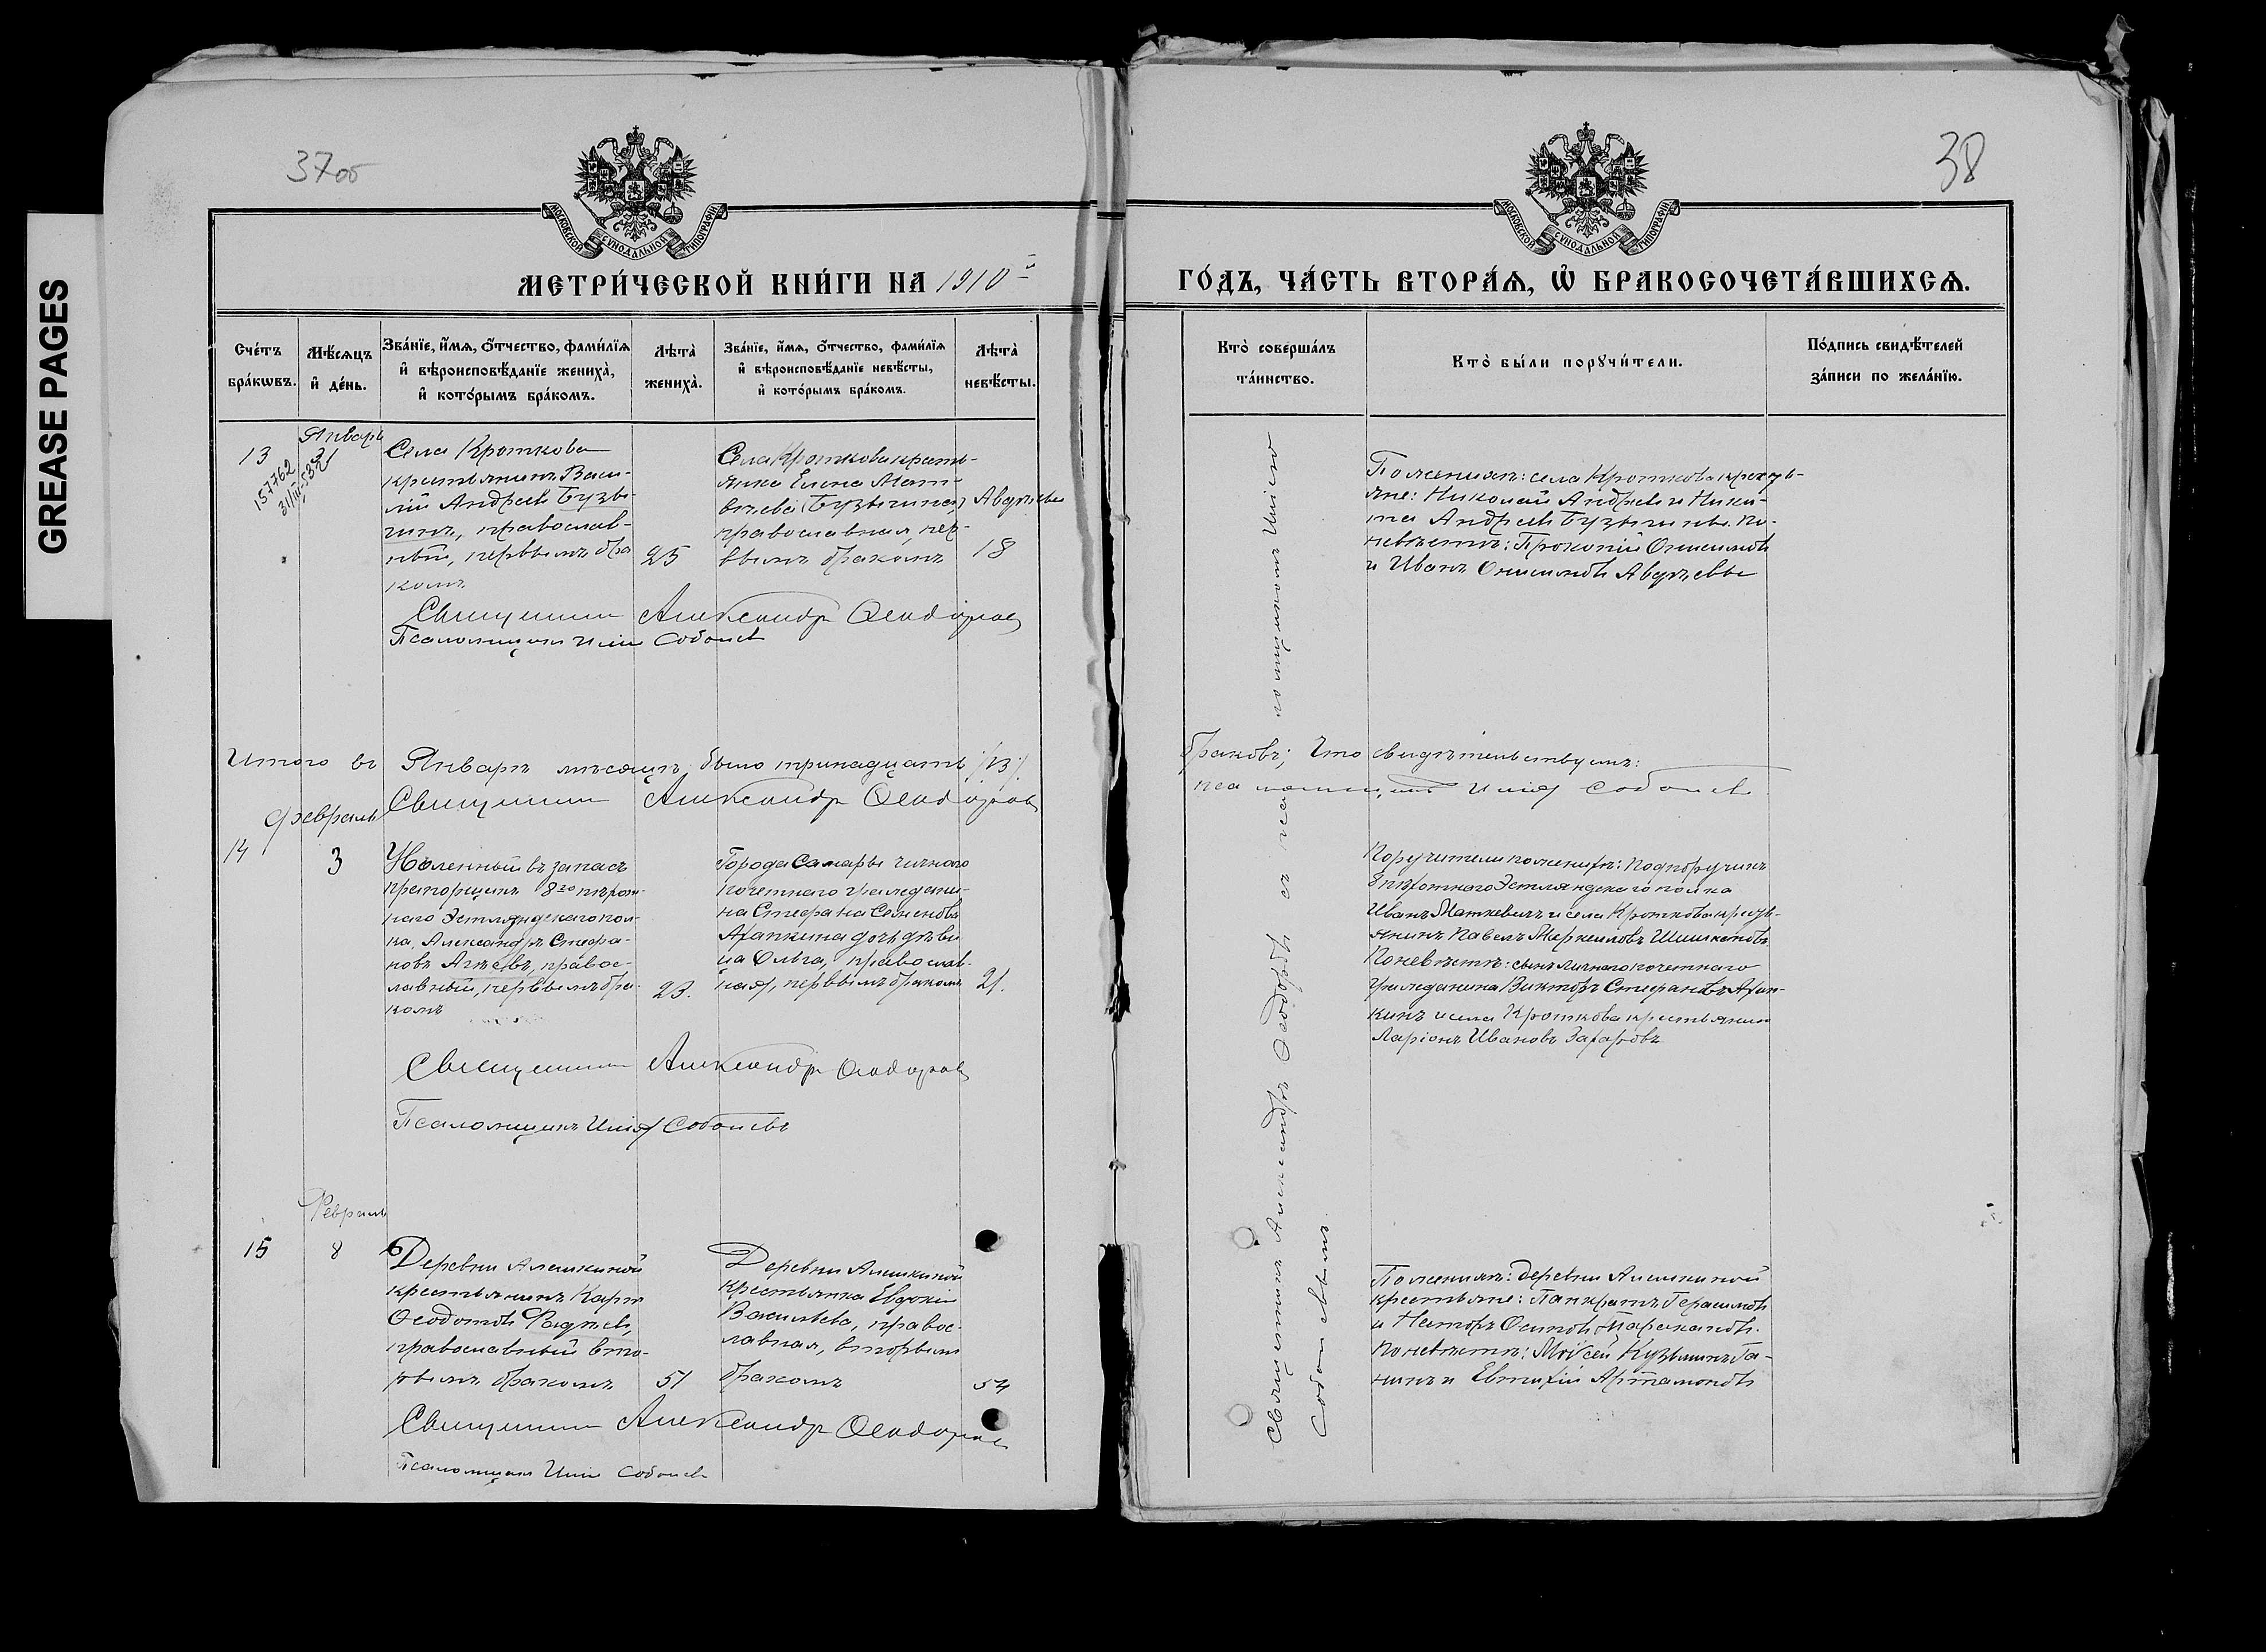 GREASE PAGES
37об
МОСКОВСКОЙ СѴНОДАЛЬНОЙ ТИПОГРАФІИ
МЕТРИ́ЧЕСКОЙ КНИ́ГИ НА 1910й
Сче́тъ бра́кѡвъ.
Мѣ́сяцъ и҆ де́нь.
Зва́нїе, и҆́мѧ, ѻ҆́тчество, фами́лїѧ и҆ вѣроисповѣ́данїе жениха̀, и҆ кото́рымъ бра́комъ.
Лѣта̀ жениха̀.
Зва́нїе, и҆́мѧ, ѻ҆́тчество, фами́лїѧ и҆ вѣроисповѣ́данїе невѣ́сты, и҆ кото́рымъ бра́комъ.
Лѣта̀ невѣ́сты.
13
157762
Январь
31
Села Кроткова
крестьянинъ Васи-
лій Андреевъ Бузы-
гинъ, православ-
ный, первымъ бра
комъ
25
Села Кроткова кресть-
янка Елена Мат-
вѣева (Бузыгина) Авдѣева
православная, пер-
вымъ бракомъ
18
Священникъ Александръ Ѳеодоровъ
Псаломщикъ Илія Соболевъ
Итого въ Январѣ мѣсяцѣ было тринадцать /13/
Священникъ Александръ Ѳеодоровъ
Февраль
14
3
Уволенный въ запасъ
прапорщикъ 8го пѣхот-
наго Эстляндскаго пол-
ка, Александръ Стефа-
новъ Агѣевъ, правос-
лавный, первымъ бра-
комъ
23.
Города Самары личнаго
почетнаго гражданина
на Стефана Семенова
Агапкина дочь дѣви
ца Ольга, православ-
ная, первымъ бракомъ
21.
Священникъ Александръ Ѳеодоровъ
Псаломщикъ Илія Соболевъ
Февраль
15
8
Деревни Алешкиной
крестьянинъ Карпъ
Ѳеодотовъ Фадѣевъ,
православный вто-
рымъ бракомъ
51
Деревни Алешкиной
крестьянка Евдокія
Васильева, правос-
лавная, вторымъ
бракомъ
54
Священникъ Александръ Ѳеодоровъ
Псаломщикъ Илія Соболевъ
38
МОСКОВСКОЙ СѴНОДАЛЬНОЙ ТИПОГРАФІИ
ГО́ДЪ, ЧА́СТЬ ВТОРА́Ѧ, Ѡ҆ БРАКОСОЧЕТА́ВШИХСѦ.
Кто̀ соверша́лъ та́инство.
Кто̀ бы́ли порꙋчи́тели.
По́дпись свидѣ́телей за́писи по жела́нїю.
По женихѣ: села Кроткова кресть-
яне: Николай Андреевъ и Ники-
та Андреевъ Бузыгины. По
невѣстѣ: Прокопій Онисимовъ
и Иванъ Онисимовъ Авдѣевы
браковъ; Что свидѣтельствуемъ:
псаломщикъ Илія Соболевъ
Поручители по женихѣ: Подпоручикъ
8 пѣхотнаго Эстляндскаго полка
Иванъ Маткевичъ и села Кроткова кресть-
янинъ Павелъ Маркеловъ Шишкановъ
По невѣстѣ: сынъ личнаго почетнаго
гражданина Викторъ Стефановъ Агап-
кинъ и села Кроткова крестьянинъ
Ларіонъ Ивановъ Захаровъ
По женихѣ: деревни Алешкиной
крестьяне: Панкратъ Герасимовъ
и Несторъ Осиповъ Таракановъ.
По невѣстѣ: Моисей Кузьминъ Га-
нинъ и Евтихій Артамоновъ
Священникъ Александръ Ѳеодоровъ съ псаломщикомъ Иліею
Соболевымъ